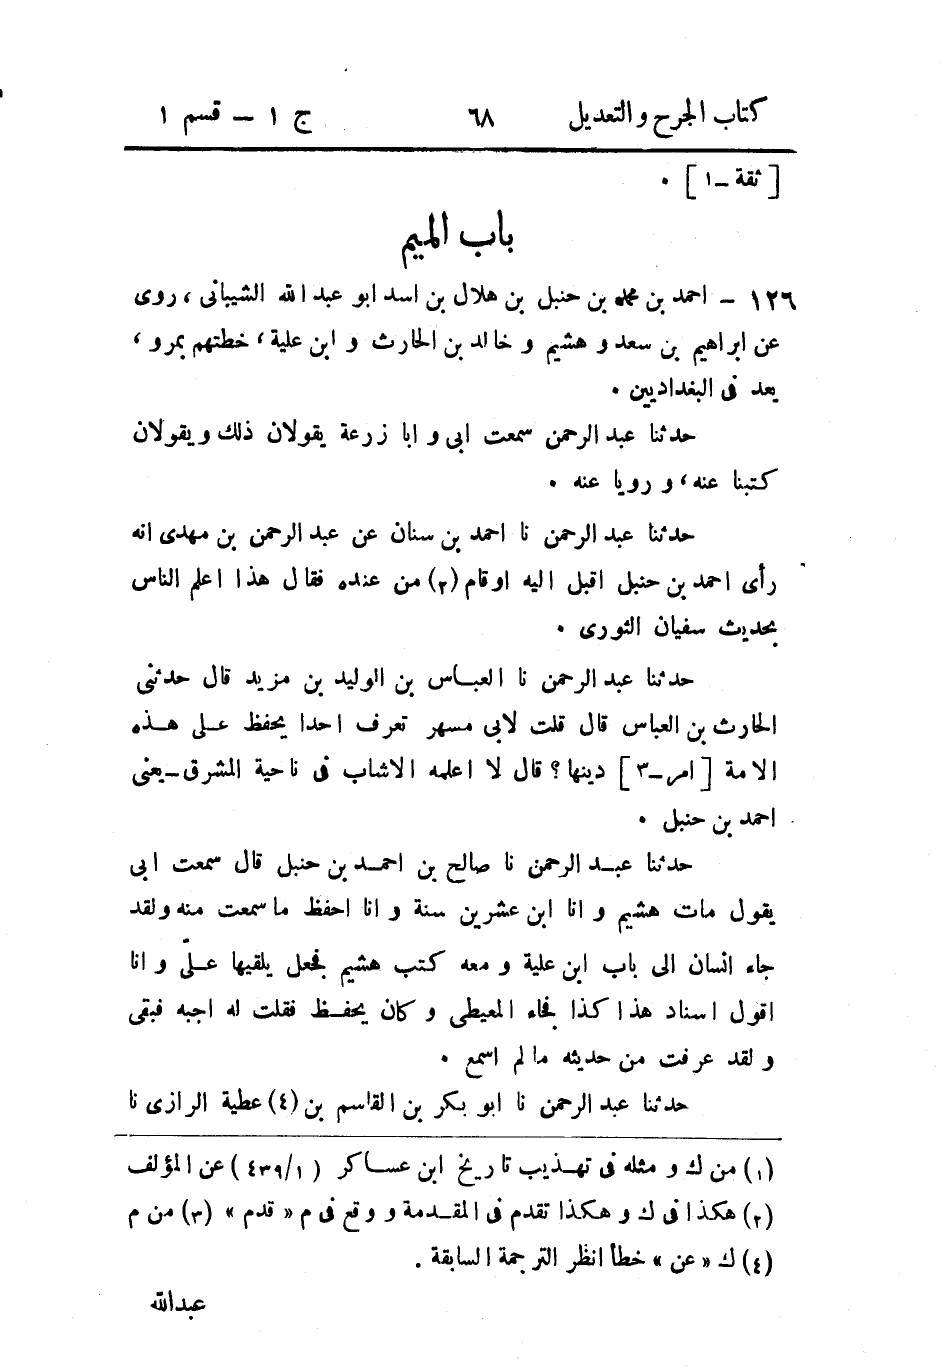 كتاب الجرح والتعديل ٦٨ ج ١ – قسم ١
[ثقة – ١] .
باب الميم
١٢٦ – احمد بن محمد بن حنبل بن هلال بن اسد ابو عبد الله الشيبانى، روى
عن ابراهيم بن سعد و هشيم و خالد بن الحارث و ابن علية، خطتهم بمرو،
يعد فى البغداديين .
حدثنا عبد الرحمن سمعت ابى و ابا زرعة يقولان ذلك و يقولان
كتبنا عنه، و رويا عنه .
حدثنا عبد الرحمن نا احمد بن سنان عن عبد الرحمن بن مهدى انه
رأى احمد بن حنبل اقبل اليه او قام (٢) من عنده فقال هذا اعلم الناس
بحديث سفيان الثورى .
حدثنا عبد الرحمن نا العباس بن الوليد بن مزيد قال حدثنى
الحارث بن العباس قال قلت لابى مسهر تعرف احدا يحفظ على هذه
الامة [امر – ٣] دينها؟ قال لا اعلمه الا شاب فى ناحية المشرق – يعنى
احمد بن حنبل .
حدثنا عبد الرحمن نا صالح بن احمد بن حنبل قال سمعت ابى
يقول مات هشيم و انا ابن عشرين سنة و انا احفظ ما سمعت منه ولقد
جاء انسان الى باب ابن علية و معه كتب هشيم فجعل يلقيها علىّ و انا
اقول اسناد هذا كذا فجاء المعيطى و كان يحفظ فقلت له اجبه فبقى
و لقد عرفت من حديثه ما لم اسمع .
حدثنا عبد الرحمن نا ابو بكر بن القاسم بن (٤) عطية الرازى نا
(١) من ك و مثله فى تهذيب تاريخ ابن عساكر (٤٣٩/١) عن المؤلف
(٢) هكذا فى ك و هكذا تقدم فى المقدمة و وقع فى م «قدم» (٣) من م
(٤) ك «عن» خطأ انظر الترجمة السابقة .
عبدالله